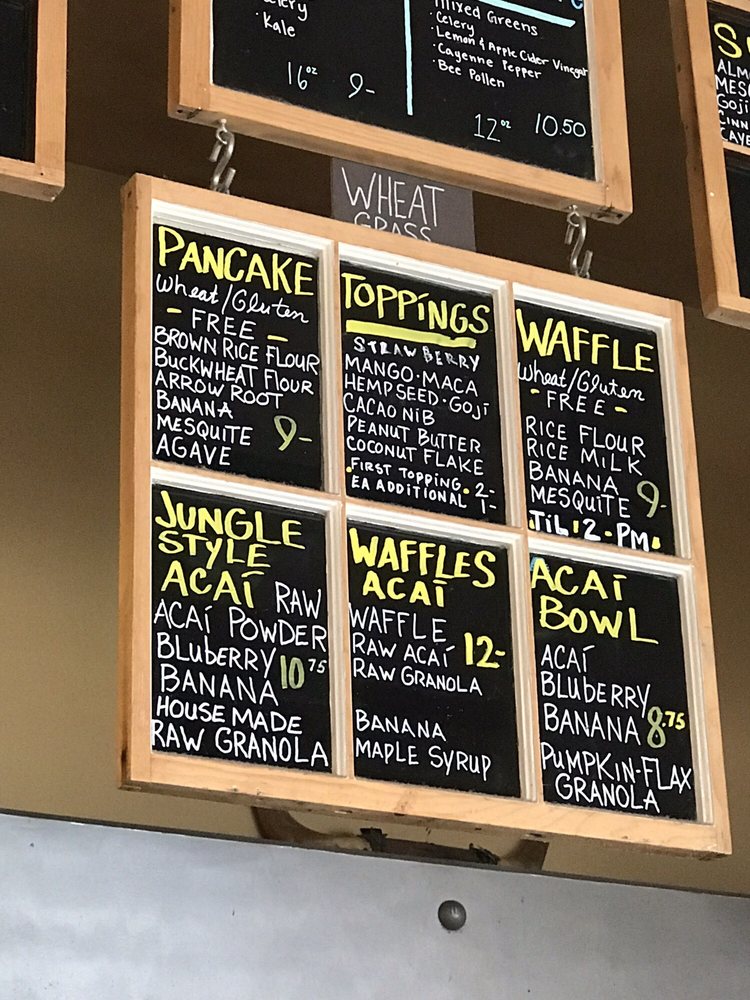 Kale
16oz 9-
Mixed Greens
· Celery
· Lemon & Apple Cider Vinegar
· Cayenne Pepper
· Bee Pollen
12oz 10.50
WHEAT
GRASS
PANCAKE
Wheat/Gluten
- FREE -
BROWN RICE FLOUR
BUCKWHEAT FLOUR
ARROW ROOT
BANANA
MESQUITE 9-
AGAVE
TOPPINGS
STRAWBERRY
MANGO·MACA
HEMPSEED·GOJI
CACAO NIB
PEANUT BUTTER
COCONUT FLAKE
·FIRST TOPPING· 2-
EA ADDITIONAL 1-
WAFFLE
Wheat/Gluten
- FREE -
RICE FLOUR
RICE MILK
BANANA
MESQUITE 9-
·TIL 12·PM·
JUNGLE
STYLE
ACAÍ RAW
ACAÍ POWDER
BLUBERRY 10.75
BANANA
HOUSE MADE
RAW GRANOLA
WAFFLES
ACAÍ
WAFFLE
RAW ACAÍ 12-
RAW GRANOLA
BANANA
MAPLE SYRUP
ACAÍ
BOWL
ACAÍ
BLUBERRY
BANANA 8.75
PUMPKIN-FLAX
GRANOLA